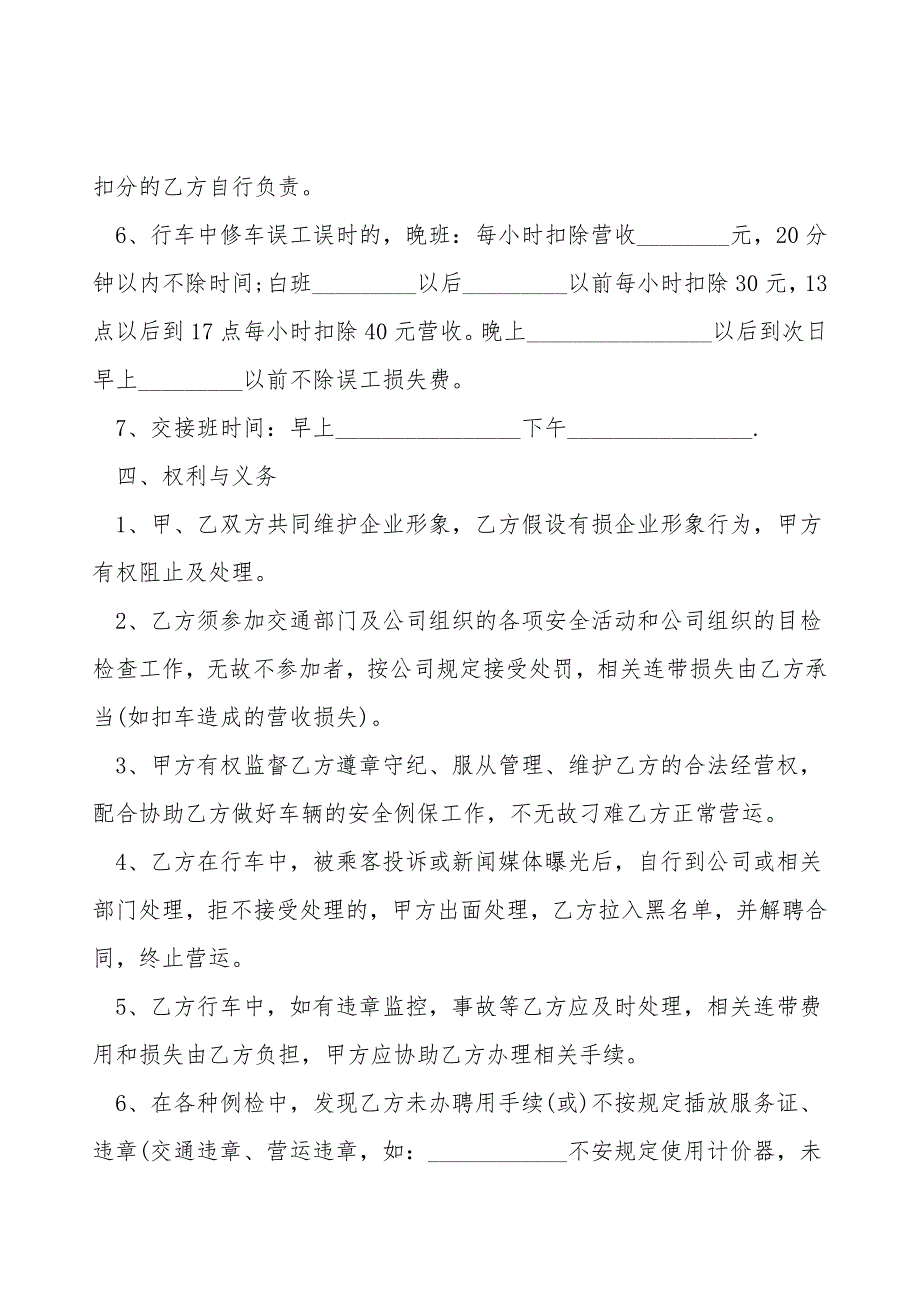 扣分的乙方自行负责。
6、行车中修车误工误时的，晚班：每小时扣除营收________元，20分
钟以内不除时间;白班_________以后_________以前每小时扣除30元，13
点以后到17点每小时扣除40元营收。晚上________________以后到次日
早上_________以前不除误工损失费。
7、交接班时间：早上________________下午________________.
四、权利与义务
1、甲、乙双方共同维护企业形象，乙方假设有损企业形象行为，甲方
有权阻止及处理。
2、乙方须参加交通部门及公司组织的各项安全活动和公司组织的目检
检查工作，无故不参加者，按公司规定接受处罚，相关连带损失由乙方承
当(如扣车造成的营收损失)。
3、甲方有权监督乙方遵章守纪、服从管理、维护乙方的合法经营权，
配合协助乙方做好车辆的安全例保工作，不无故刁难乙方正常营运。
4、乙方在行车中，被乘客投诉或新闻媒体曝光后，自行到公司或相关
部门处理，拒不接受处理的，甲方出面处理，乙方拉入黑名单，并解聘合
同，终止营运。
5、乙方行车中，如有违章监控，事故等乙方应及时处理，相关连带费
用和损失由乙方负担，甲方应协助乙方办理相关手续。
6、在各种例检中，发现乙方未办聘用手续(或)不按规定插放服务证、
违章(交通违章、营运违章，如：____________不安规定使用计价器，未